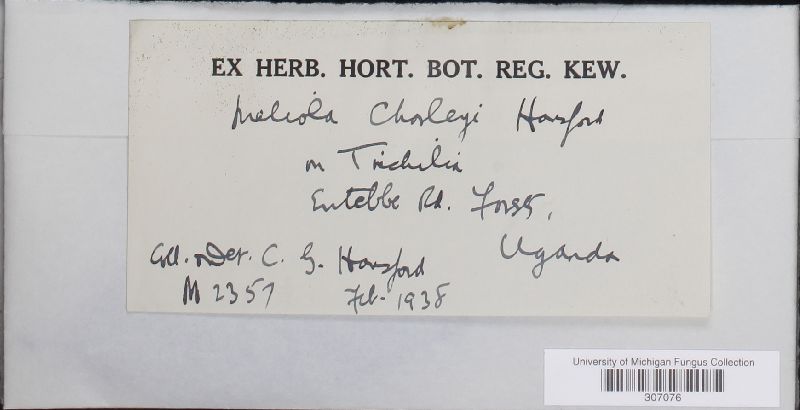 EX HERB. HORT. BOT. REG. KEW.
Meliola Chorleyi Hansford
on Trichilia
Entebbe Rd. Forest,
Uganda
Coll. & Det. C. G. Hansford
M 2357 Feb. 1938
University of Michigan Fungus Collection
307076